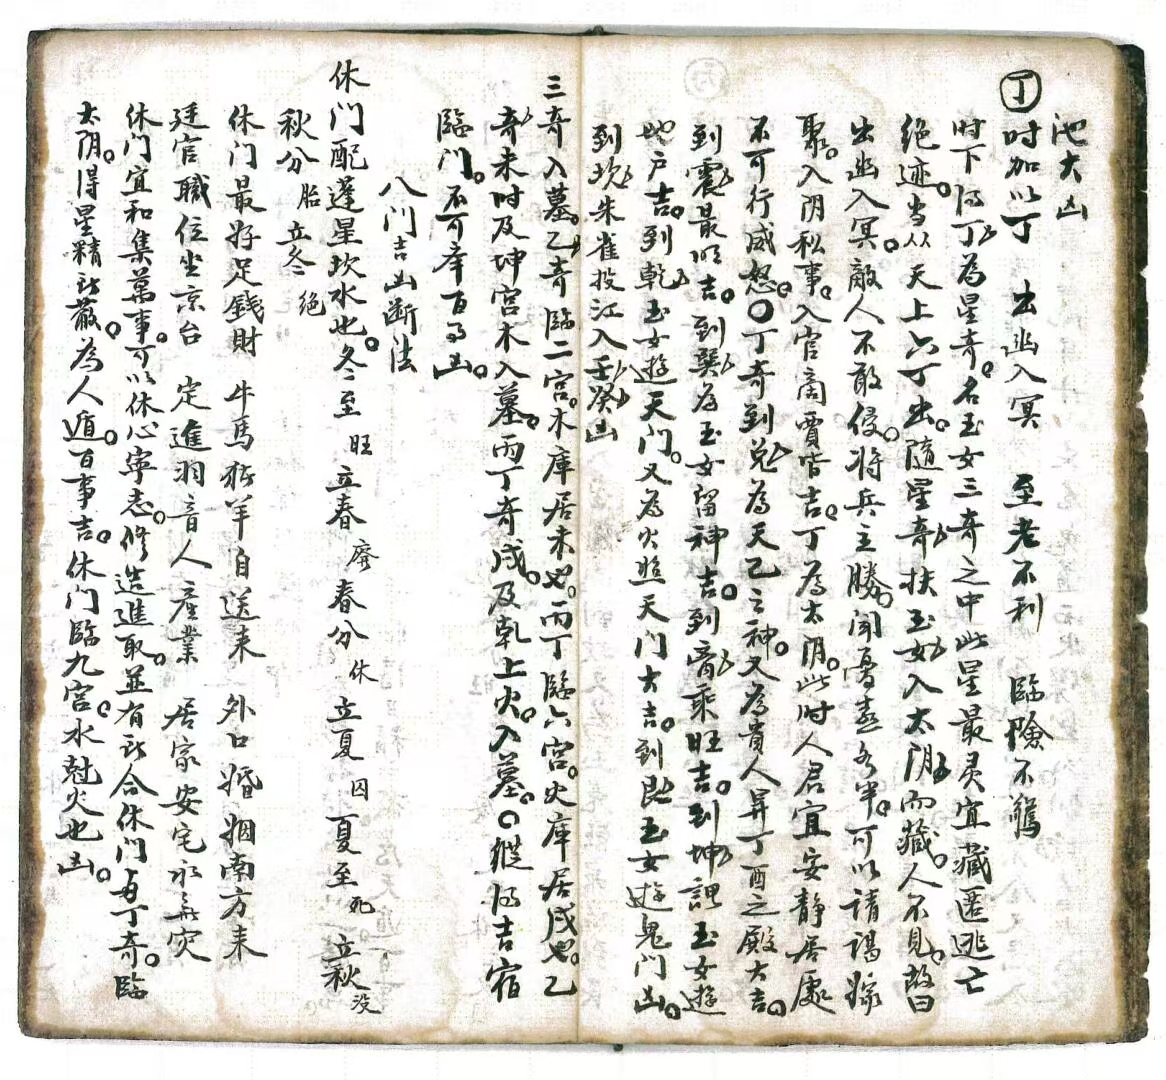 池大凶
丁 时加以丁 出幽入冥 至老不利 臨險不驚
时下得丁为星奇。名玉女三奇之中此星最灵宜藏匿逃亡
绝迹。当从天上六丁出。隨星奇扶玉女入太阴而藏。人不見。故曰
出幽入冥。敵人不敢侵。将兵主勝。闻憂喜各半。可以請謁嫁
娶。入阴私事。入官商賈皆吉。丁为太阴。此时人君宜安静居處
不可行威怒。〇丁奇到兌为天乙之神。又为貴人昇丁酉之殿大吉。
到震最明吉。到巽为玉女留神吉。到离乘旺吉。到坤謂玉女遊
地户吉。到乾玉女遊天门。又为火照天门大吉。到艮玉女遊鬼门凶。
到坎朱雀投江入壬癸凶
三奇入墓。乙奇臨二宫。木庫居未也。丙丁臨六宫。火庫居戌也。乙
奇未时及坤宫木入墓。丙丁奇戌。及乾上火。入墓。〇縱得吉宿
臨门。不可奉百事凶。
八门吉凶断法
休门配蓬星坎水也。冬至 旺 立春 廢 春分 休 立夏 囚 夏至 死 立秋 没
秋分 胎 立冬 绝
休门最好足錢財 牛馬猪羊自送来 外口婚姻南方来
迁官職位坐京台 定進羽音人產業 居家安宅永無灾
休门宜和集萬事。可以休心寧志。修造進取。並有所合休门与丁奇。臨
太阴。得星精所蔽。为人遁。百事吉。休门臨九宫水尅火也凶。